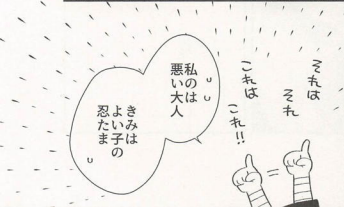 それは
それ
これは
これ!!
私のは
悪い大人
きみは
よい子の
忍たま
=